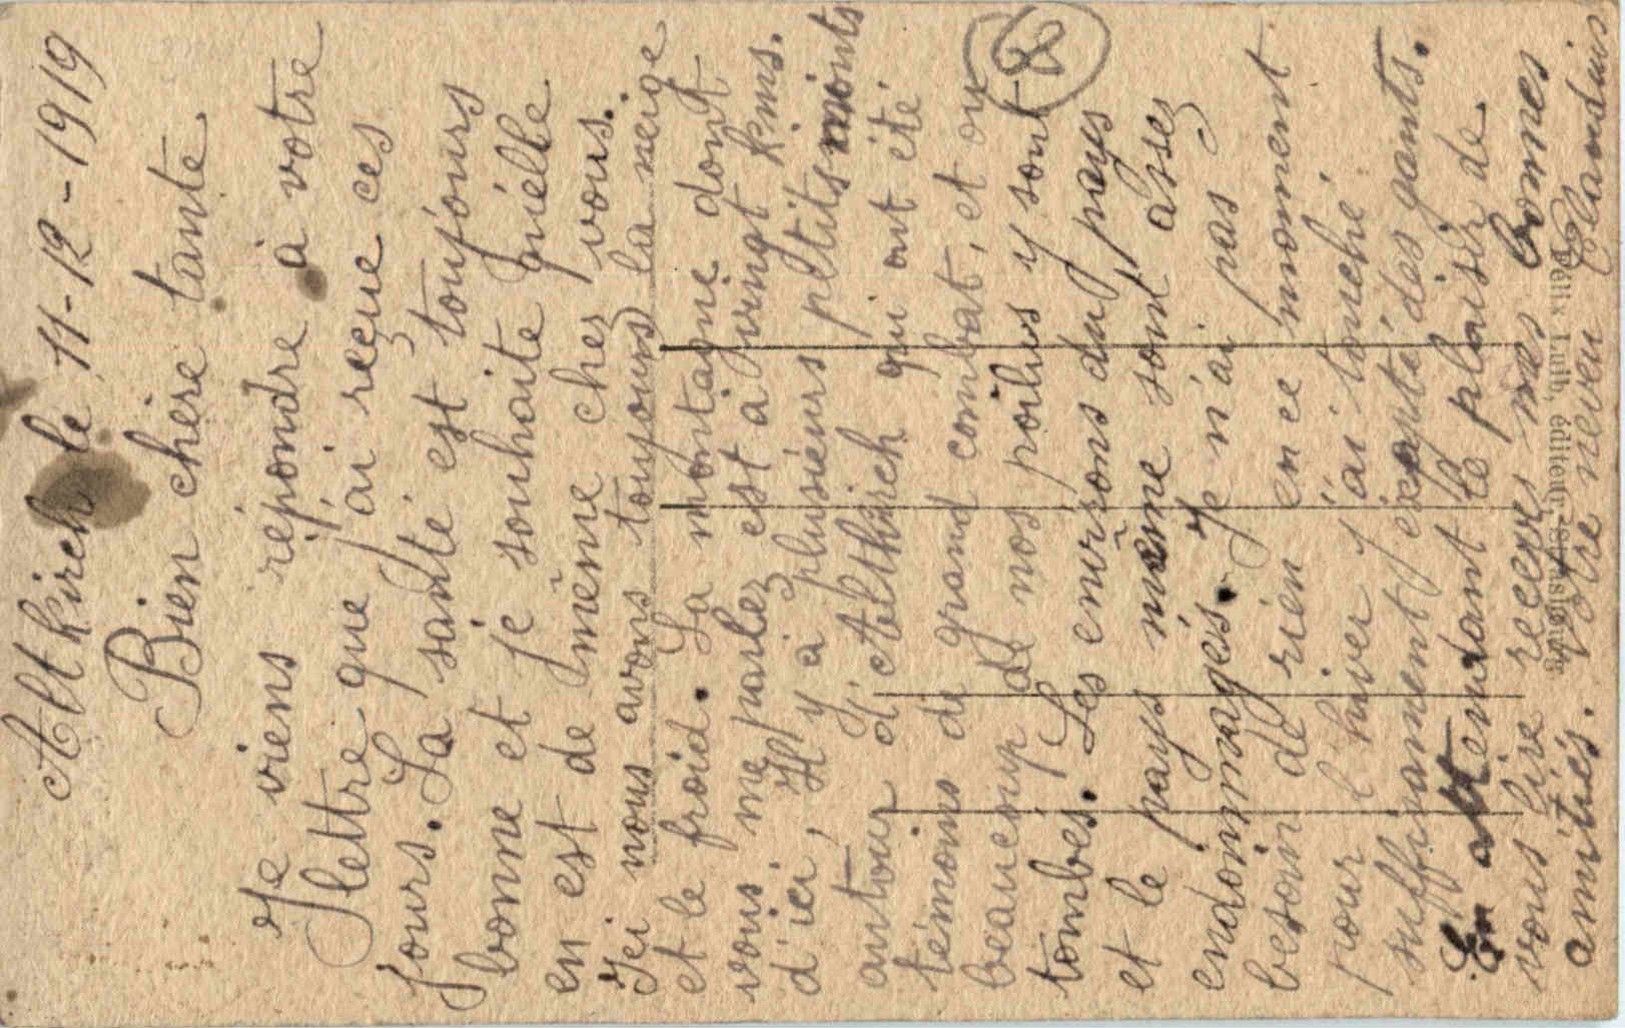 Altkirch le 11-12-1919
Bien chère tante
Je viens répondre à votre
lettre que j'ai reçue ces
jours. La santé est toujours
bonne et je souhaite qu'elle
en est de même chez vous.
Ici nous avons toujours la neige
et le froid. La montagne dont
vous me parlez est à vingt kms.
d'ici, Il y a plusieurs petits monts
autour d'Altkirch qui ont été
témoins de grand combat, et ou
beaucoup de nos poilus y sont
tombés. Les envirsons du pays
et le pays même sont assez
endommagés. Je n'ai pas
besoin de rien en ce moment
pour l'hiver j'ai touché
suffisament éxapté des gants.
En attendant le plaisir de
vous lire recevez mes bonnes
amitiés. Votre neveu Blandin
8
Félix Luib, éditeur, Strasbourg